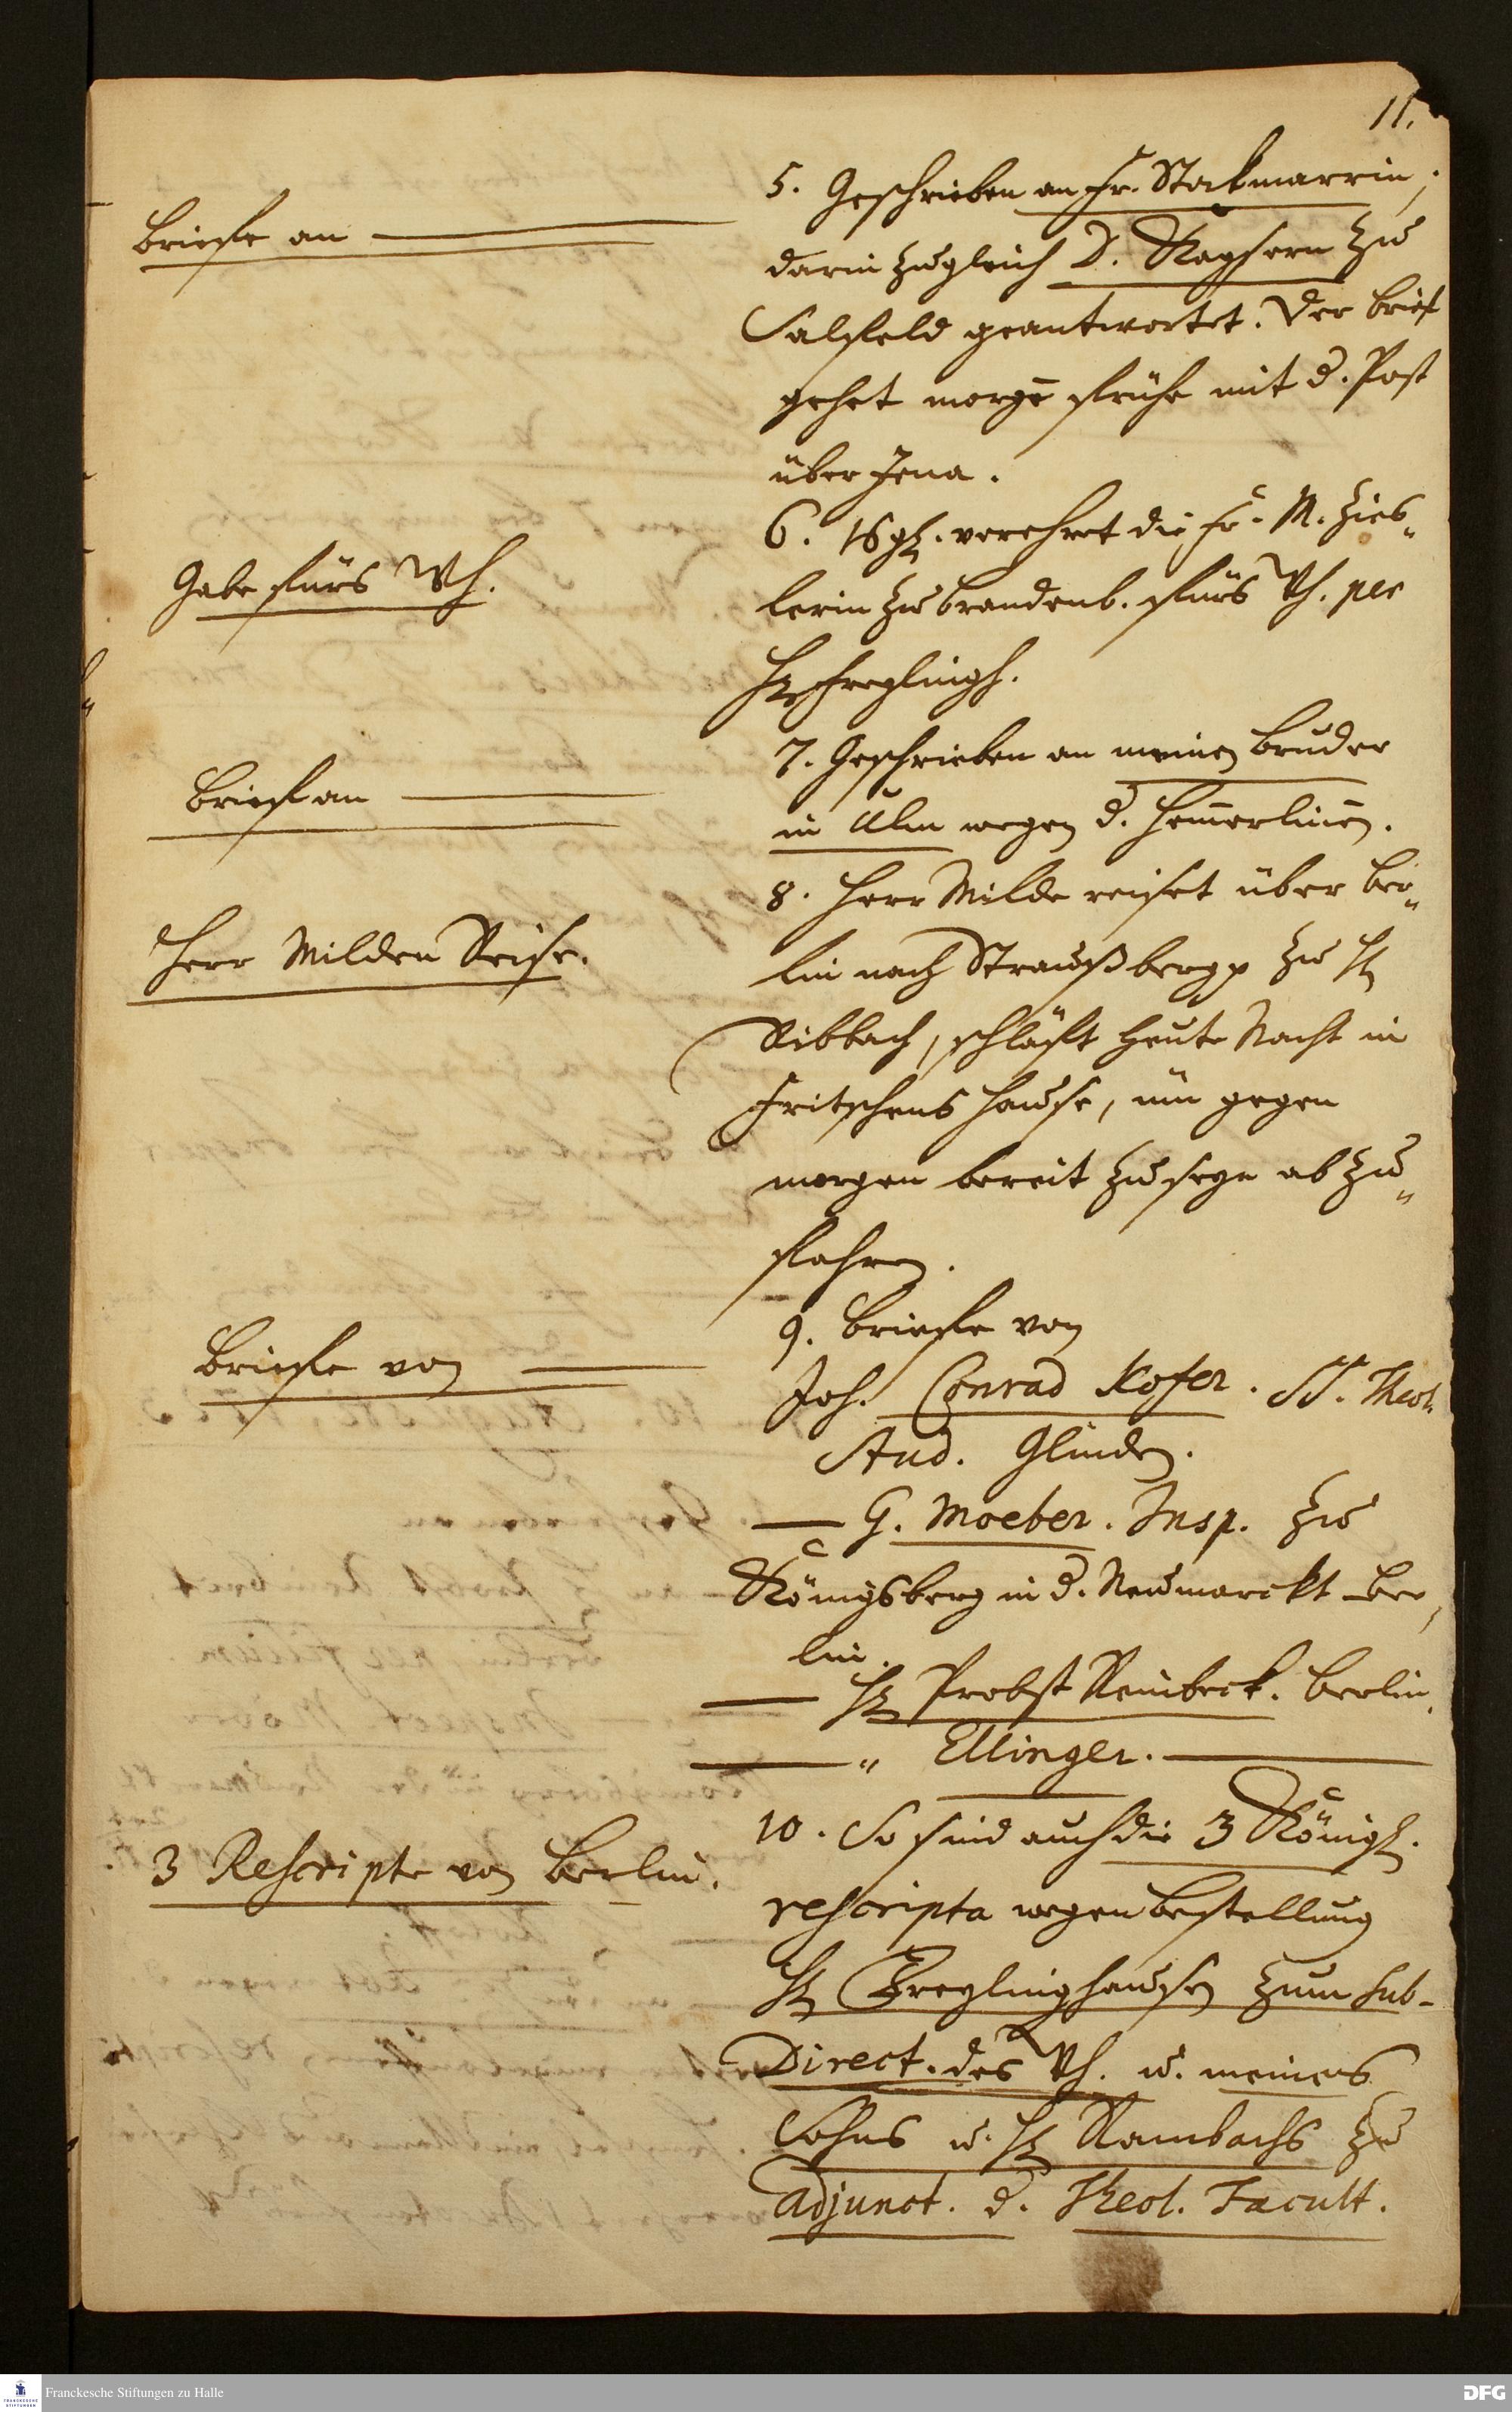 11.
Briefe an
5. Geschrieben an Fr. Stockmarrin;
darin zugleich D. Kaysern zu
Salfeld geantwortet. Der brief
gehet morgē frühe mit d. Post
über Jena.
Gabe fürs Wh.
6. 16 gl. verehret die Fr. M. Zies„
lerin zu brandenb. fürs Wh. per
H. Freylingh.
Brief an
7. Geschrieben an meinen bruder
in Ulm wegen d.
Herr Milden Reise.
8. Herr Milde reiset über Ber„
lin nach Straußberg zu H.
Ribbach, schläft heute Nacht in
Fritschens Hause, um gegen
morgen bereit zu seyn abzu„
fahren.
Briefe von
9. briefe von
Joh. Conrad Kofer. SS. Theol.
Stud.
G. Moeber. Insp. zu
Königsberg in d. Neumarckt Ber„
lin.
H. Probst Reinbeck. Berlin.
„ Ellinger.
3 Rescripte von Berlin.
10. So sind auch die 3 Königl.
rescripta wegen bestellung
H. Freylinghausen zum Sub-
Direct. des Wh. u. meines
Sohns u. H. Rambachs zu
Adjunct. d. Theol. Facult.
Franckesche Stiftungen zu Halle
DFG